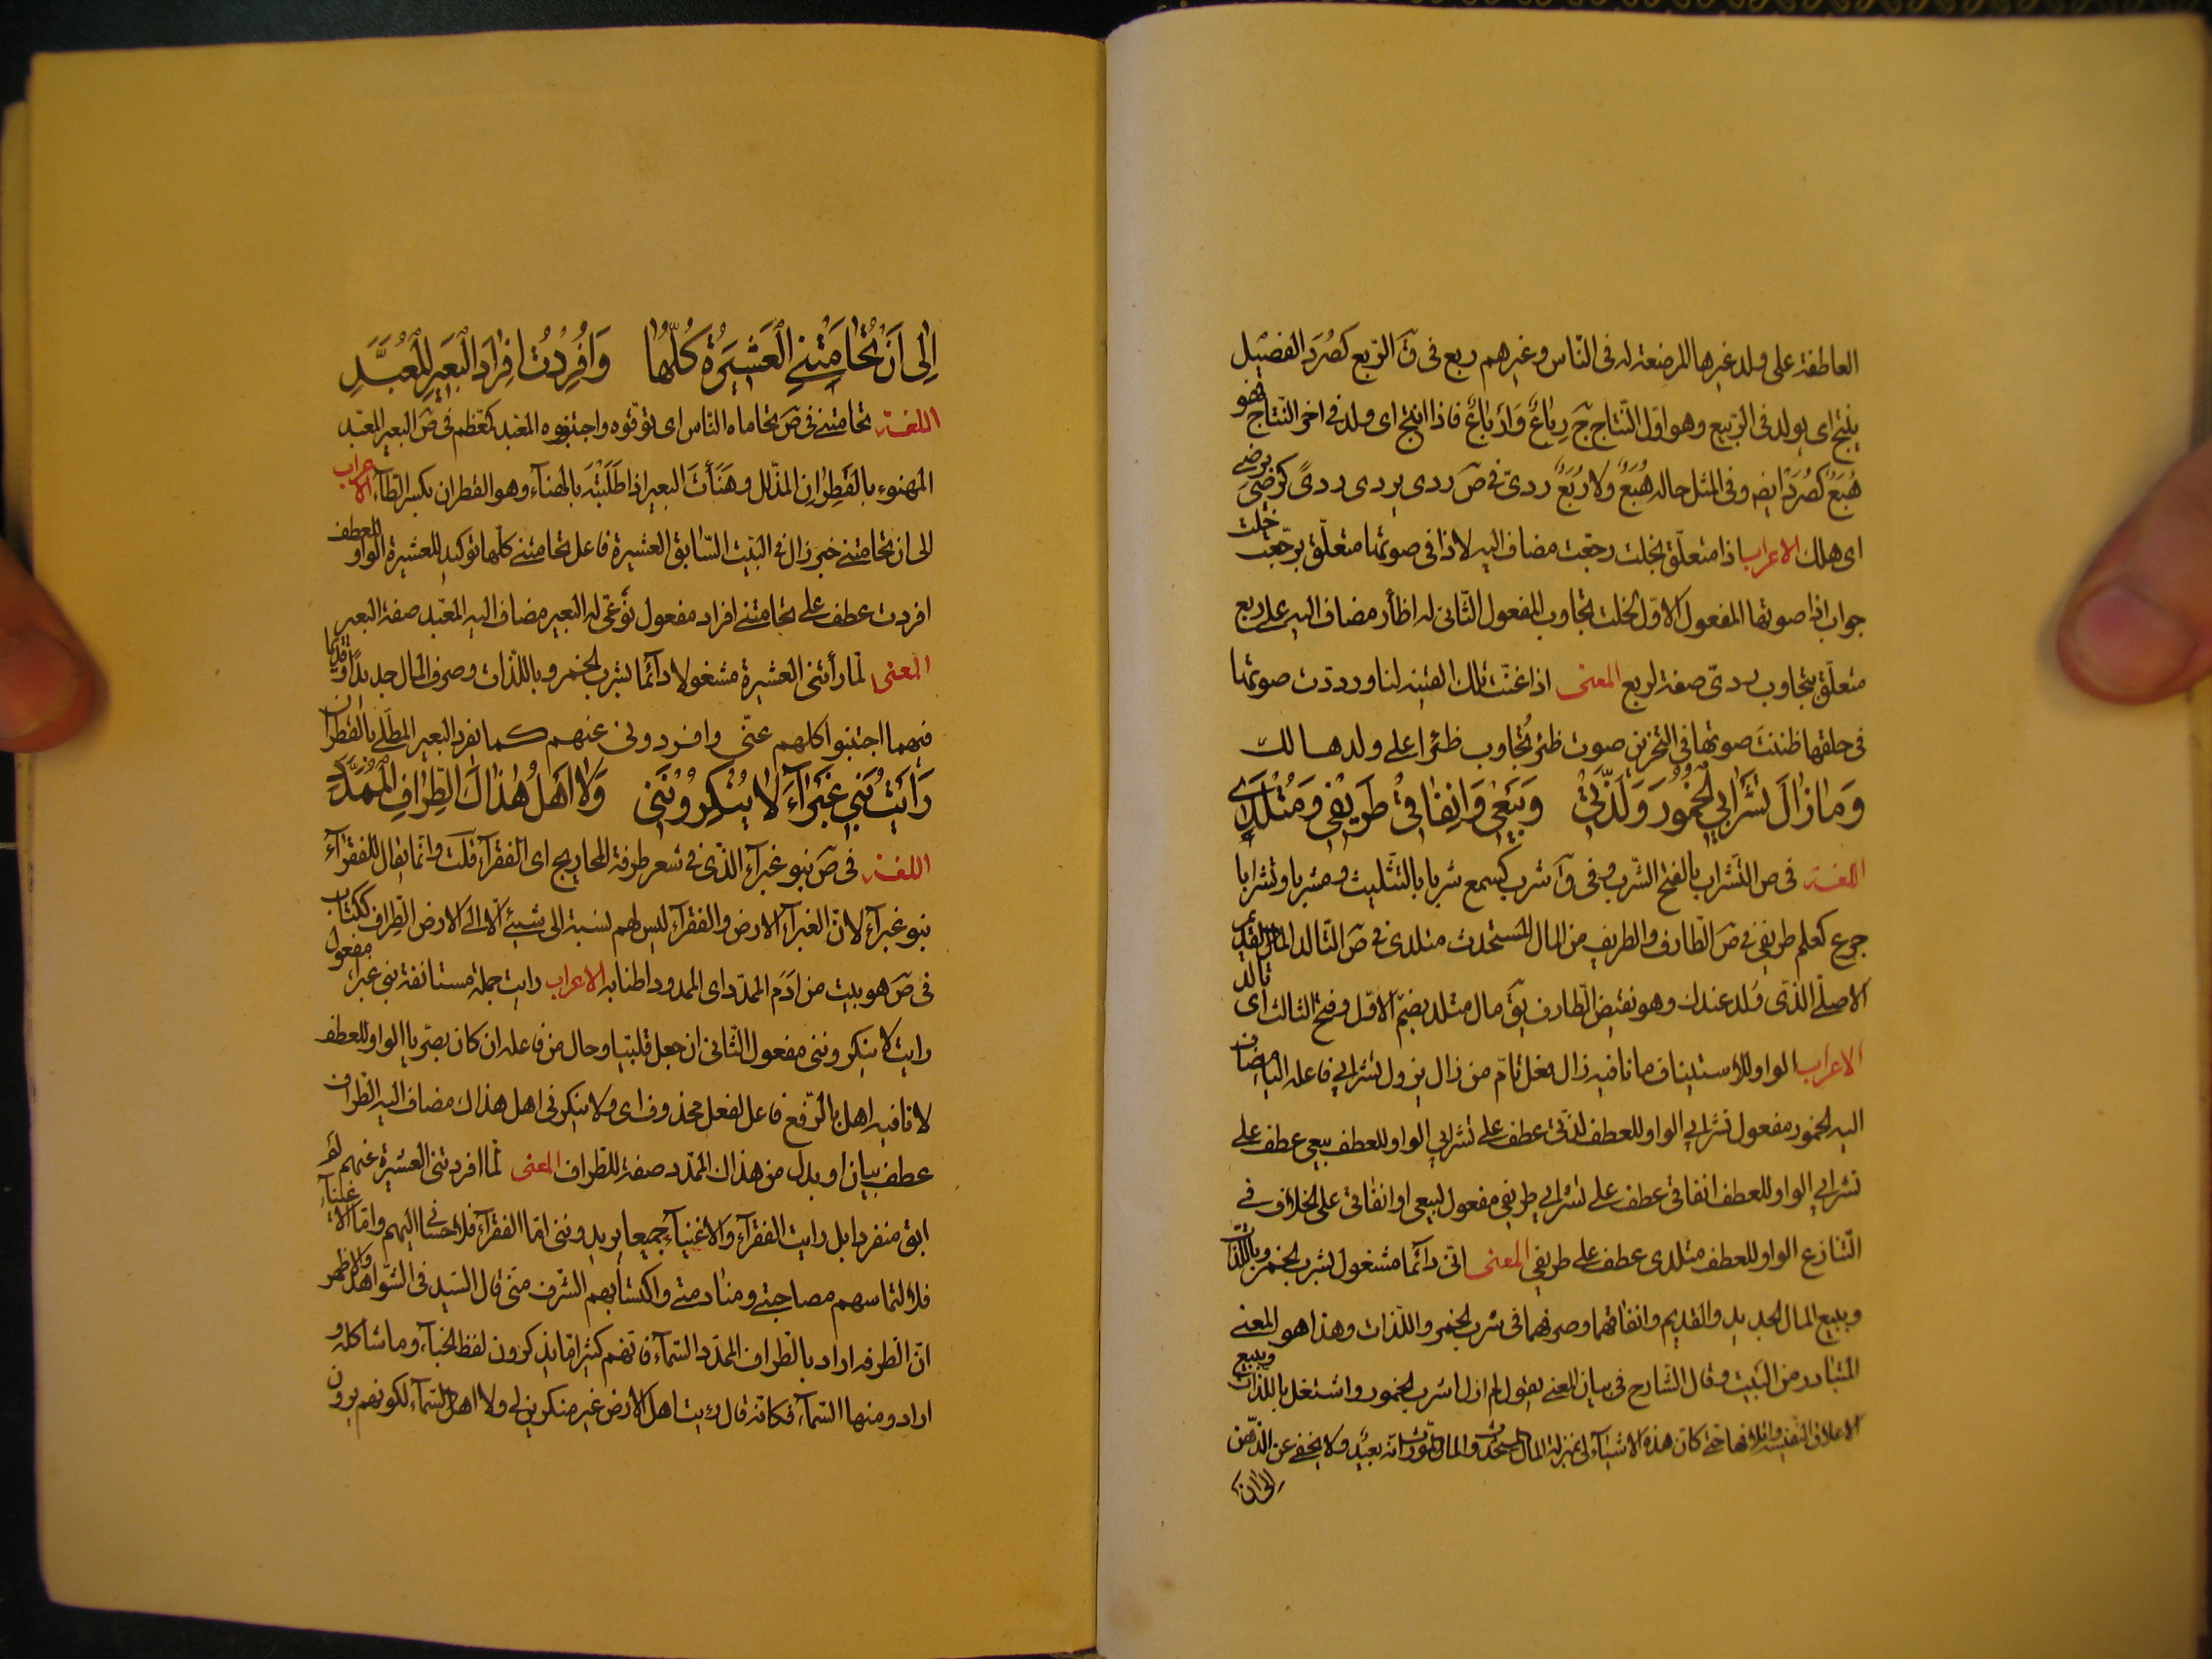 العاطفة على ولد غيرها المرضعة له فى النّاس وغيرهم ربع فى قَ الرّبع كصُرَد الفصيل
ينتج اى يولد فى الرّبيع وهو اوّل النّتاج جَ رِباعٌ وَاَرباعٌ فاذا انتج اى ولد فى اخر النّتاج فهو
هُبَعٌ كصُرَدٍ ايضا وفى المثل حاله هُبَعٌ ولا رُبَعٌ ردى فى صَ ردى يردى ردىً كرضى يرضى
اى هلك الاعراب اذا متعلّق بخلت رجعت مضاف اليه لاذا فى صوتها متعلّق برجّعت خلت
جواب اذا صوتها المفعول الاوّل لخلت تجاوب المفعول الثّانى له اظأر مضاف اليه على ربع
متعلّق بتجاوب ردى صفة لربع المعنى اذا غنّت تلك القينه لنا ورددت صوتها
فى حلقها ظننت صوتها فى التحزين صوت ظئر تُجاوب ظئرا على ولدها لك
وَمٰا زٰالَ تَشْرٰابِي الْخُمُورَ وَلَذَّتِي وَبَيْعِي وَاِنْفٰاقِي طَرِيْفِي وَمُتْلَدِي
اللغة فى ص التّشراب بالفتح الشّرب وفى قَ شرب كسمع شربا بالتّثليث ومشربا وتشرابا
جرع كعلم طريفى فى صَ الطّارف والطريف من المال المستحدث متلدى فى صَ التّالد المال القديم
الاصلّى الذّى ولد عندك وهو نقيض الطّارف يقَ مال متلد بضمّ الاوّل وفتح الثالث اى تالد
الاعراب الواو للاستيناف ما نافيه زال فعل تامّ من زال يزول تشرابى فاعله اليا مضاف
اليه الخمور مفعول تشرابى الواو للعطف لذّتى عطف على تشرابى الواو للعطف بيعى عطف على
تشرابى الواو للعطف انفاقى عطف على تشرابى طريفى مفعول لبيعى او انفاقى على الخلاف فى
التّنازع الواو للعطف متلدى عطف على طريفى المعنى انّى دآئما مشغول بشرب الخمر وباللذّات
وببيع المال الجديد والقديم وانفاقهما وصرفهما فى شرب الخمر واللذّات وهذا هو المعنى
المتبادر من البيت وقال الشّارح فى بيان المعنى يقول لم ازل اشرب الخمور واشتغل باللذّات وببيع
الاعلاق النّفيسة واتلافها حتّى كانّ هذه الاشيآء لى بمنزلة المال المستحدث والمال الموروث انه بعيد ولا يخفى عن الذّهن
الى ان
اِلٰى اَنْ تَحٰامَتْنِي الْعَشِيْرَةُ كُلُّهٰا وَاُفْرِدْتُ اِفْرٰادَ الْبَعِيْرِ الْمُعَبَّدِ
اللغة تحامتنى فى صَ تحاماه النّاس اى توقّوه واجتنبوه المعبد كمعظم فى صَ البعير المعبّد
المهنوء بالقَطِرٰانِ المذّلل وهَنَأتُ البعير اذا طَلَيْتَه بالهنآء وهو القطران بكسر الطآء الاعراب
الى ان تحامتنى خبر زال فى البيت السّابق العشيرة فاعل تحامتنى كلّها توكيد للعشيرة الواو للعطف
افردت عطف على تحامتنى افراد مفعول نوعى له البعير مضاف اليه المعّبد صفة البعير
المعنى لمّا رأتنى العشيرة مشغولا دآئما بشرب الخمر وباللذّات وصرف المال جديدًا وقديما
فيهما اجتنبوا كلهم عنّى وافردونى عنهم كما يفرد البعير المطلّى بالقطران
رَاَيْتُ بَنِي غَبْرٰآءَ لٰا يُنْكِرُوْنَنِي وَلٰا اَهْلُ هٰذٰاكَ الطِّرٰافِ الْمُمَدَّدِ
اللغة فى صَ بنو غبرآء الذّى فى شعر طرفة المحاويج اى الفقرآء قلت وانّما يقال للفقرآء
بنو غبرآء لانّ الغبرآء الارض والفقرآء ليس لهم نسبة الى شيئ الّا الى الارض الطّراف ككتاب
فى صَ هو بيت من اَدَم الممدّد اى الممدود اطنابه الاعراب رايت جملة مستانفة بنى غبرآء مفعول
رايت لا ينكروننى مفعول الثّانى ان جعل قلبيّا وحال من فاعله ان كان بصّريا الواو للعطف
لا نافيه اهل بالرّفع فاعل لفعل محذوف اى ولا ينكرنى اهل هذاك مضاف اليه الطّراف
عطف بيان او بدل من هذاك الممّدد صفة للطّراف المعنى لمّا افردتنى العشيرة عنهم لم
ابق منفردا بل رايت الفقرآء والاغنيآء جميعا يريدوننى امّا الفقرآء فلاحسانى اليهم وامّا الاغنيآء
فلالتماسهم مصاحبتى ومنادمتى واكتسابهم الشّرف منّى قال السّيد فى الشّواهد والاظهر
انّ الطرفه اراد بالطّراف الممّدد السّمآء فانّهم كثيرا مّا يذكرون لفظ الخبآء وما شاكله و
ارادو منها السّمآء فكانّه قال رايت اهل الارض غير منكرين لى ولا اهل السّمآء لكونهم يرون